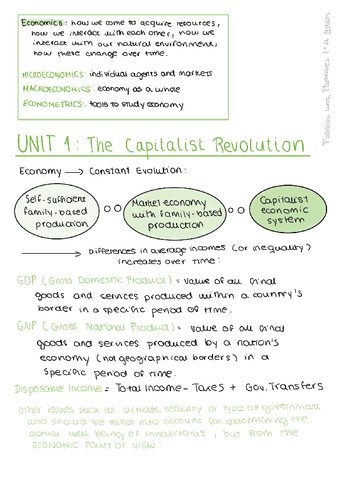 Economics: how we come to acquire resources,
how we interact with each other, how we
interact with our natural environment,
how these change over time.
MICROECONOMICS: individual agents and markets
MACROECONOMICS: economy as a whole
ECONOMETRICS: tools to study economy
UNIT 1: The Capitalist Revolution
Economy → Constant Evolution:
Self-sufficient
family-based
production
Market economy
with family-based
production
Capitalist
economic
system
→ Differences in average incomes (or inequality)
increases over time:
GDP (Gross Domestic Product) = value of all final
goods and services produced within a country's
border in a specific period of time.
GNP (Gross National Product) = value of all final
goods and services produced by a nation's
economy (not geographical borders) in a
specific period of time.
Disposable Income = Total Income - Taxes + Gov. Transfers
Other issues such as climate, security or type of government
also should be taken into account for determining the
actual well being of inhabitants, but from the
ECONOMIC POINT OF VIEW: